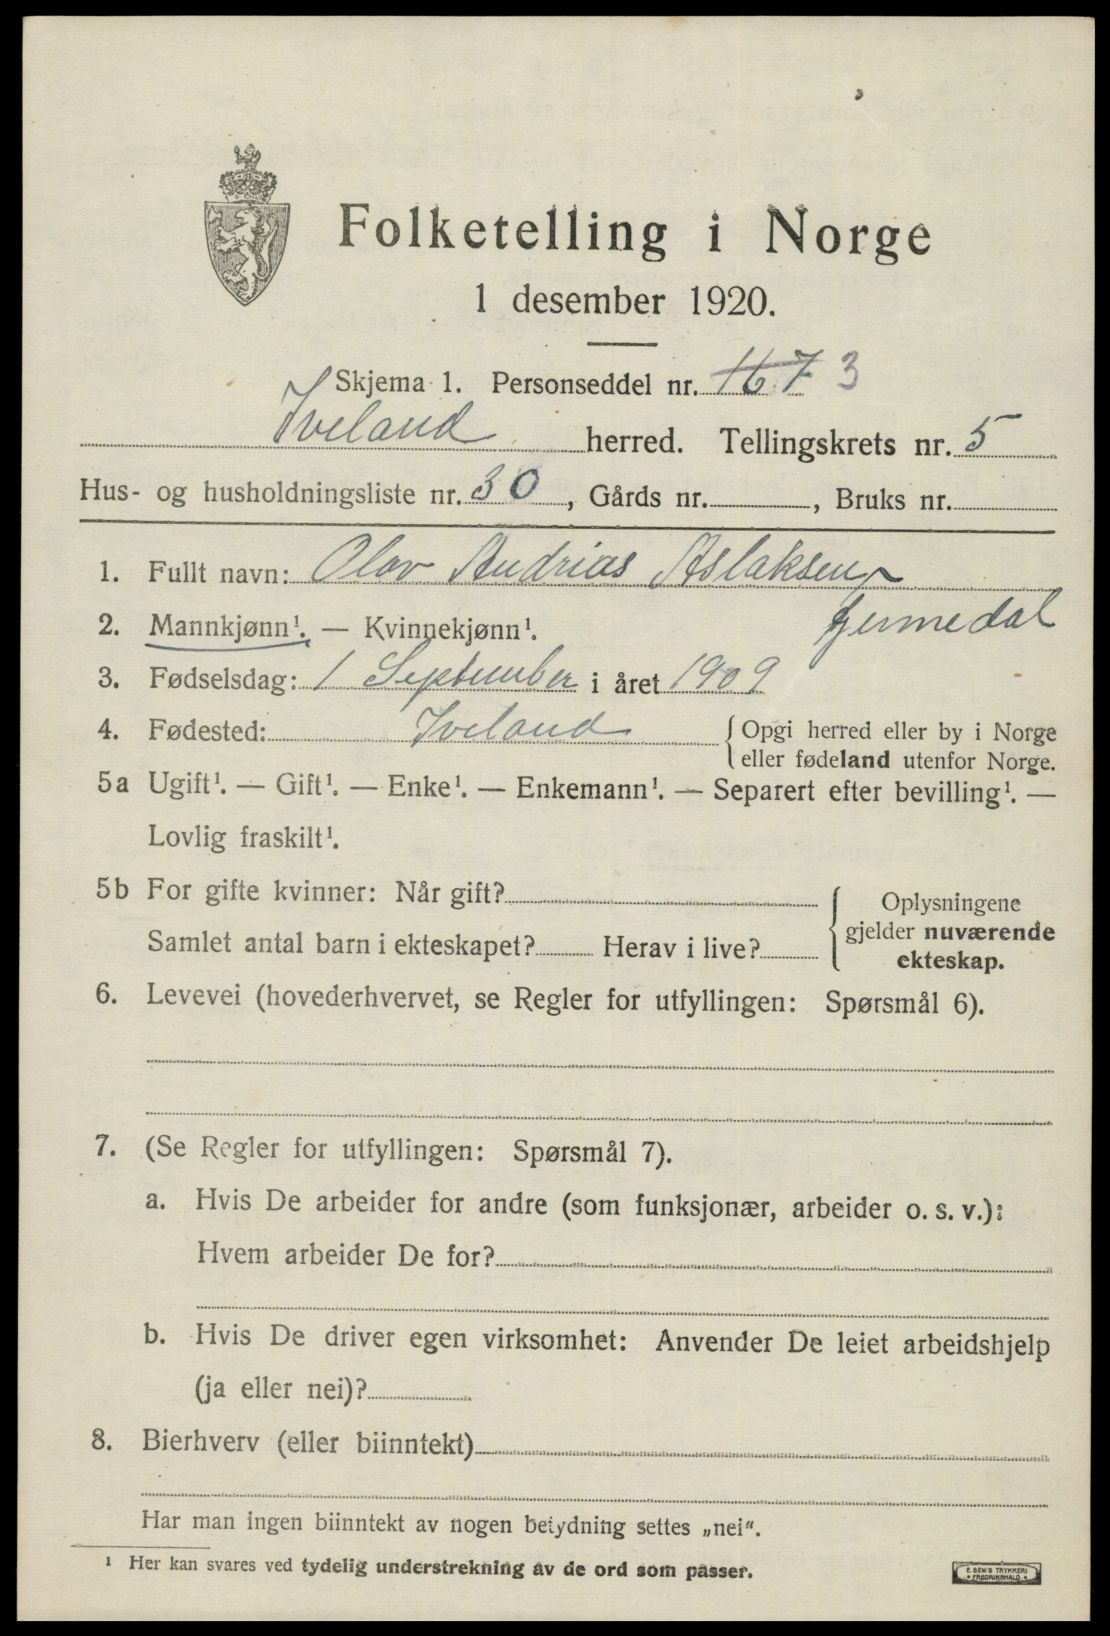 Folketelling i Norge
1 desember 1920.
Skjema 1. Personseddel nr. 167 3
Iveland herred. Tellingskrets nr. 5
Hus- og husholdningsliste nr. 30, Gårds nr. , Bruks nr.
1. Fullt navn: Olav Andrias Aslaksen
2. Mannkjønn¹. — Kvinnekjønn¹.
3. Fødselsdag: 1 September i året 1909
4. Fødested: Iveland { Opgi herred eller by i Norge
eller fødeland utenfor Norge.
5a Ugift¹. — Gift¹. — Enke¹. — Enkemann¹. — Separert efter bevilling¹. —
Lovlig fraskilt¹.
5b For gifte kvinner: Når gift?
Samlet antal barn i ekteskapet? Herav i live?
{ Oplysningene
gjelder nuværende
ekteskap.
6. Levevei (hovederhvervet, se Regler for utfyllingen: Spørsmål 6).
7. (Se Regler for utfyllingen: Spørsmål 7).
a. Hvis De arbeider for andre (som funksjonær, arbeider o. s. v.):
Hvem arbeider De for?
b. Hvis De driver egen virksomhet: Anvender De leiet arbeidshjelp
(ja eller nei)?
8. Bierhverv (eller biinntekt)
Har man ingen biinntekt av nogen betydning settes „nei“.
¹ Her kan svares ved tydelig understrekning av de ord som passer.
E. SEM'S TRYKKERI
FREDRIKSHALD